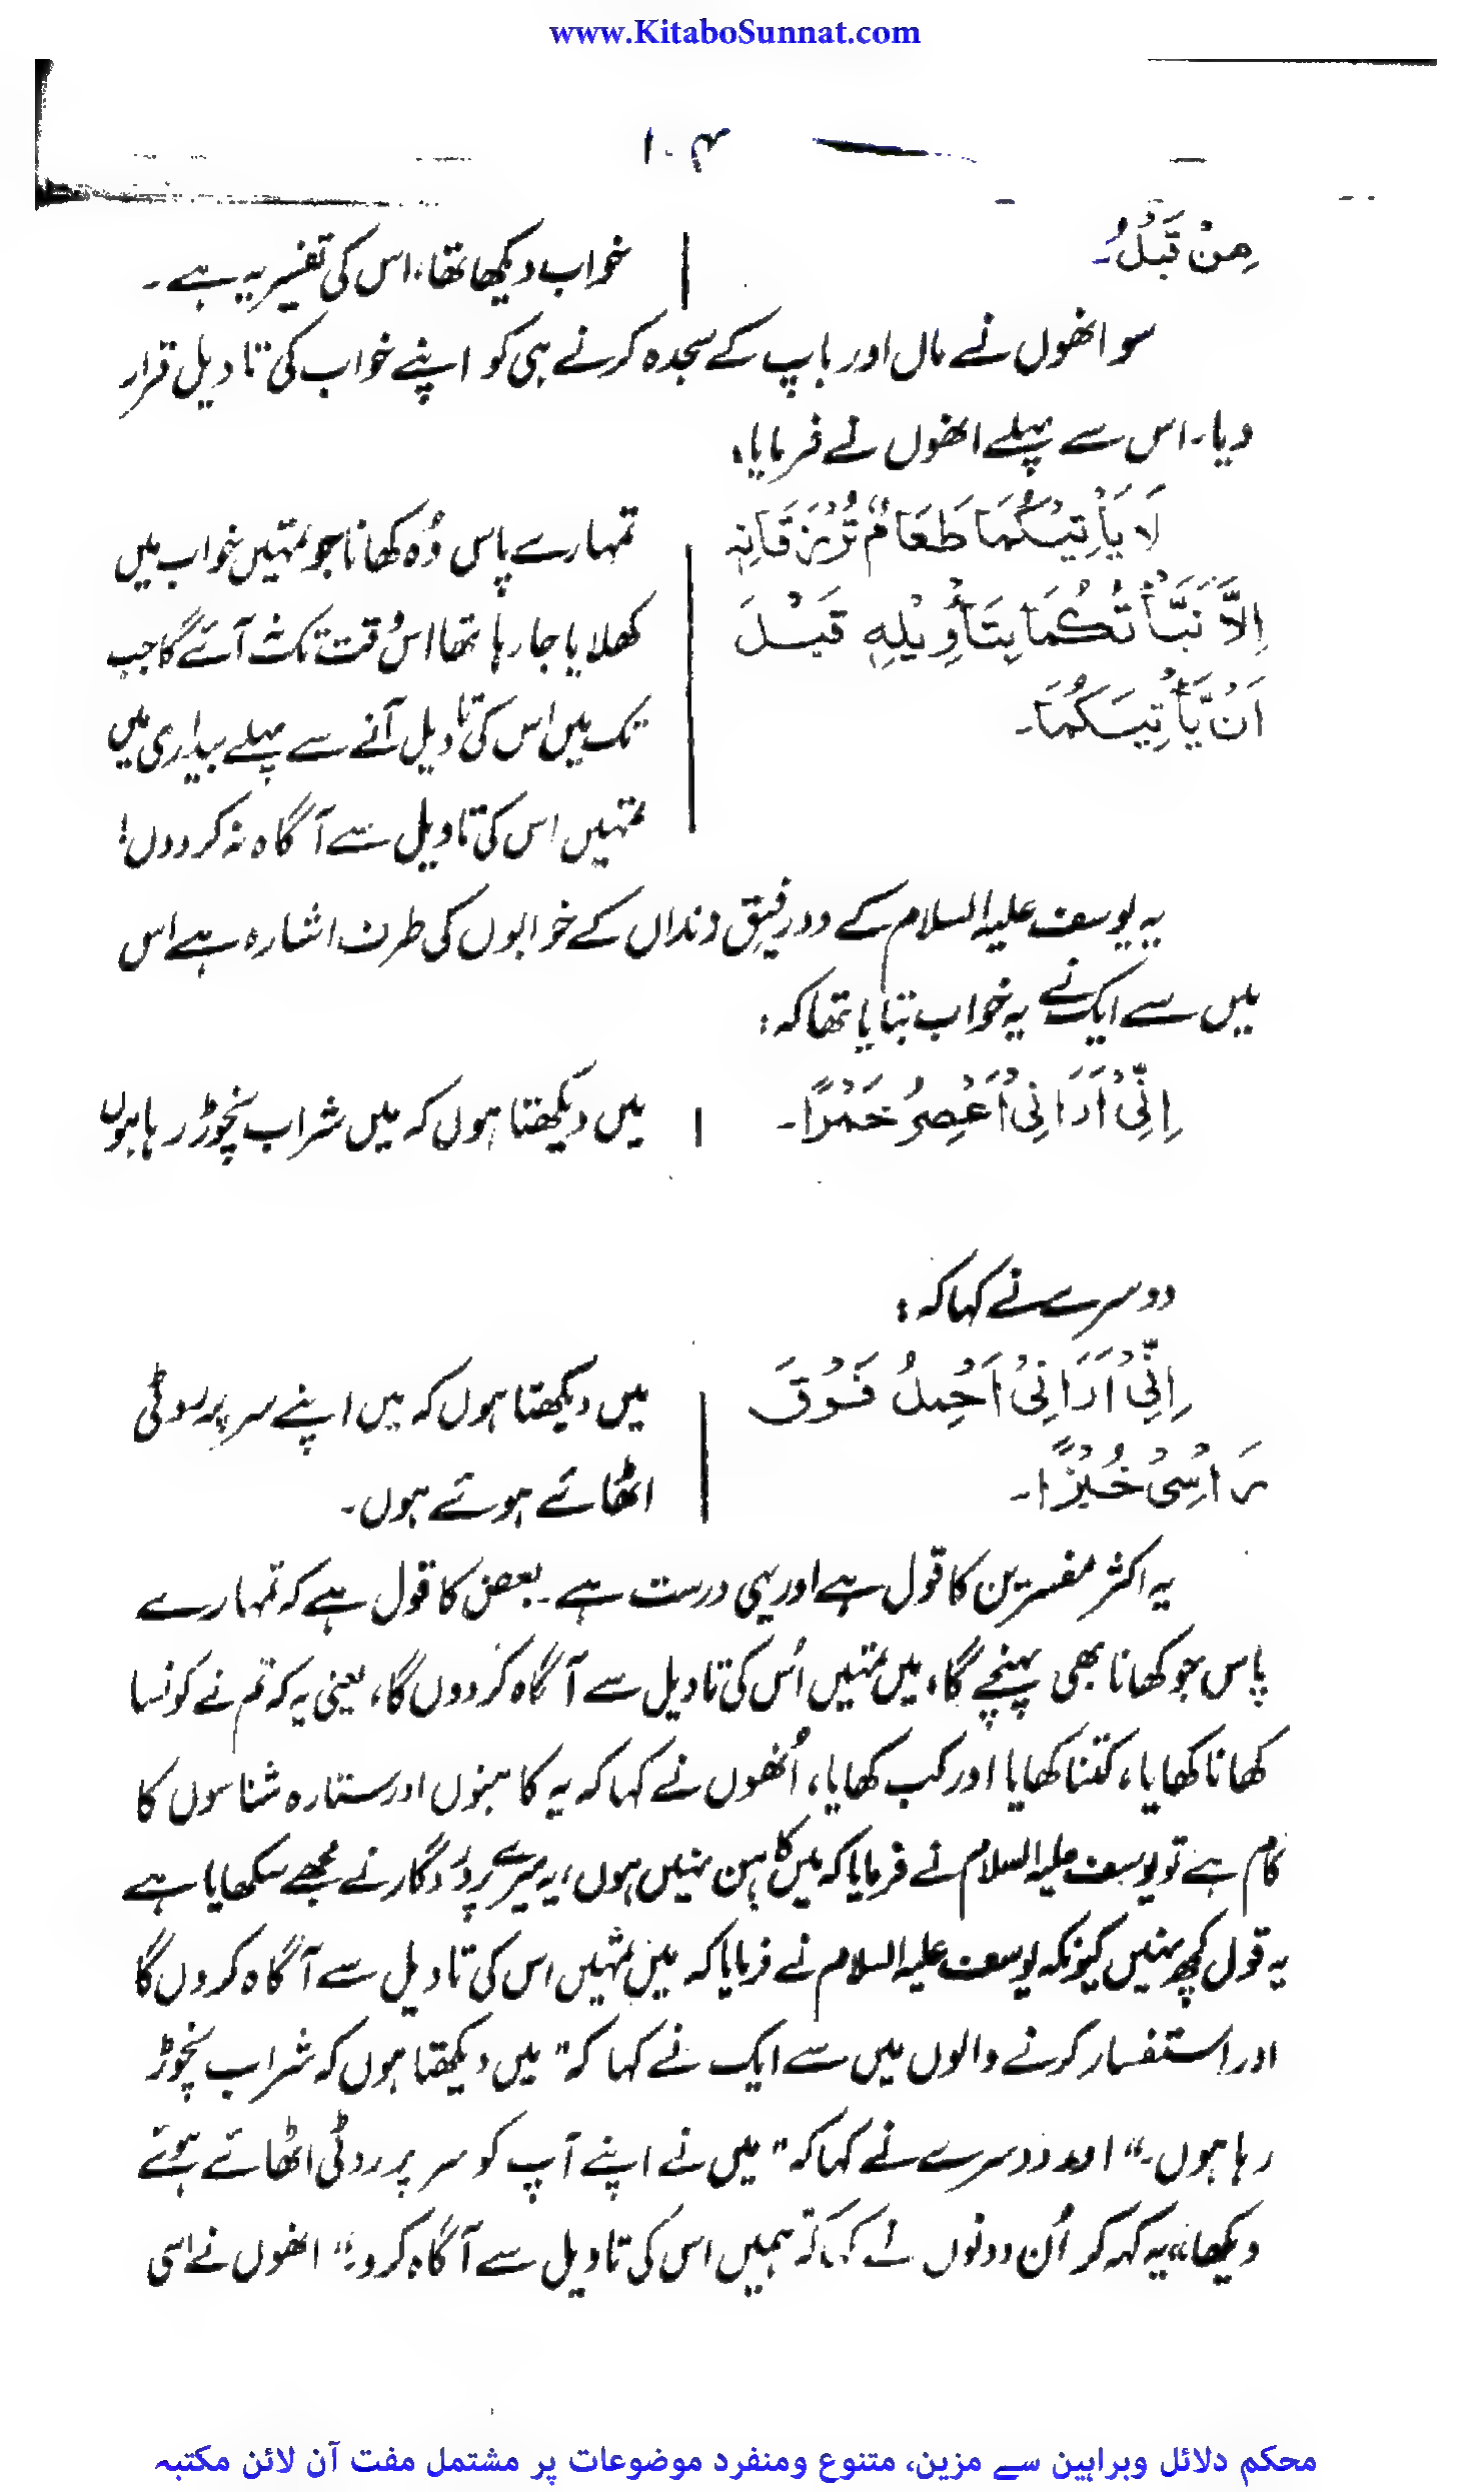 www.KitaboSunnat.com
۱۰۴
مِنْ قَبْلُ۔ | خواب دیکھا تھا، اس کی تفسیر یہ ہے۔
سو انھوں نے ماں اور باپ کے سجدہ کرنے ہی کو اپنے خواب کی تاویل قرار
دیا۔ اس سے پہلے انھوں نے فرمایا:
لَا يَأْتِيْكُمَا طَعَامٌ تُرْزَقَانِهٖ | تمہارے پاس وُہ کھانا جو تمہیں خواب میں
اِلَّا نَبَّأْتُكُمَا بِتَأْوِيْلِهٖ قَبْلَ | کھلایا جا رہا تھا اسُ وقت تک نہ آئے گا جب
اَنْ يَّأْتِيَكُمَا۔ | تک میں اس کی تاویل آنے سے پہلے بیداری میں
تمہیں اس کی تاویل سے آگاہ نہ کر دوں!
یہ یوسف علیہ السلام کے دو رفیق زنداں کے خوابوں کی طرف اشارہ ہے اس
میں سے ایک نے یہ خواب بتایا تھا کہ:
اِنِّيْ اَرَانِيْ اَعْصِرُ خَمْرًا۔ | میں دیکھتا ہوں کہ میں شراب نچوڑ رہا ہوں
دوسرے نے کہا کہ:
اِنِّيْ اَرَانِيْ اَحْمِلُ فَوْقَ | میں دیکھتا ہوں کہ میں اپنے سر پر روٹی
رَاْسِيْ خُبْزًا۔ | اٹھائے ہوئے ہوں۔
یہ اکثر مفسرین کا قول ہے اور یہی درست ہے۔ بعض کا قول ہے کہ تمہارے
پاس جو کھانا بھی پہنچے گا، میں تمہیں اُس کی تاویل سے آگاہ کر دوں گا، یعنی یہ کہ تم نے کونسا
کھانا کھایا، کتنا کھایا اور کب کھایا، اُنھوں نے کہا کہ یہ کاہنوں اور ستارہ شناسوں کا
کام ہے تو یوسف علیہ السلام نے فرمایا کہ میں کاہن نہیں ہوں، یہ میرے پروردگار نے مجھے سکھایا ہے
یہ قول کچھ نہیں کیونکہ یوسف علیہ السلام نے فرمایا کہ میں تمہیں اس کی تاویل سے آگاہ کر دوں گا
اور استفسار کرنے والوں میں سے ایک نے کہا کہ "میں دیکھتا ہوں کہ شراب نچوڑ
رہا ہوں۔" اور دوسرے نے کہا کہ "میں نے اپنے آپ کو سر پر روٹی اٹھائے ہوئے
دیکھا" یہ کہہ کر اُن دونوں نے کہا کہ ہمیں اس کی تاویل سے آگاہ کر دو۔" انھوں نے اسی
محکم دلائل وبراہین سے مزین، متنوع ومنفرد موضوعات پر مشتمل مفت آن لائن مکتبہ